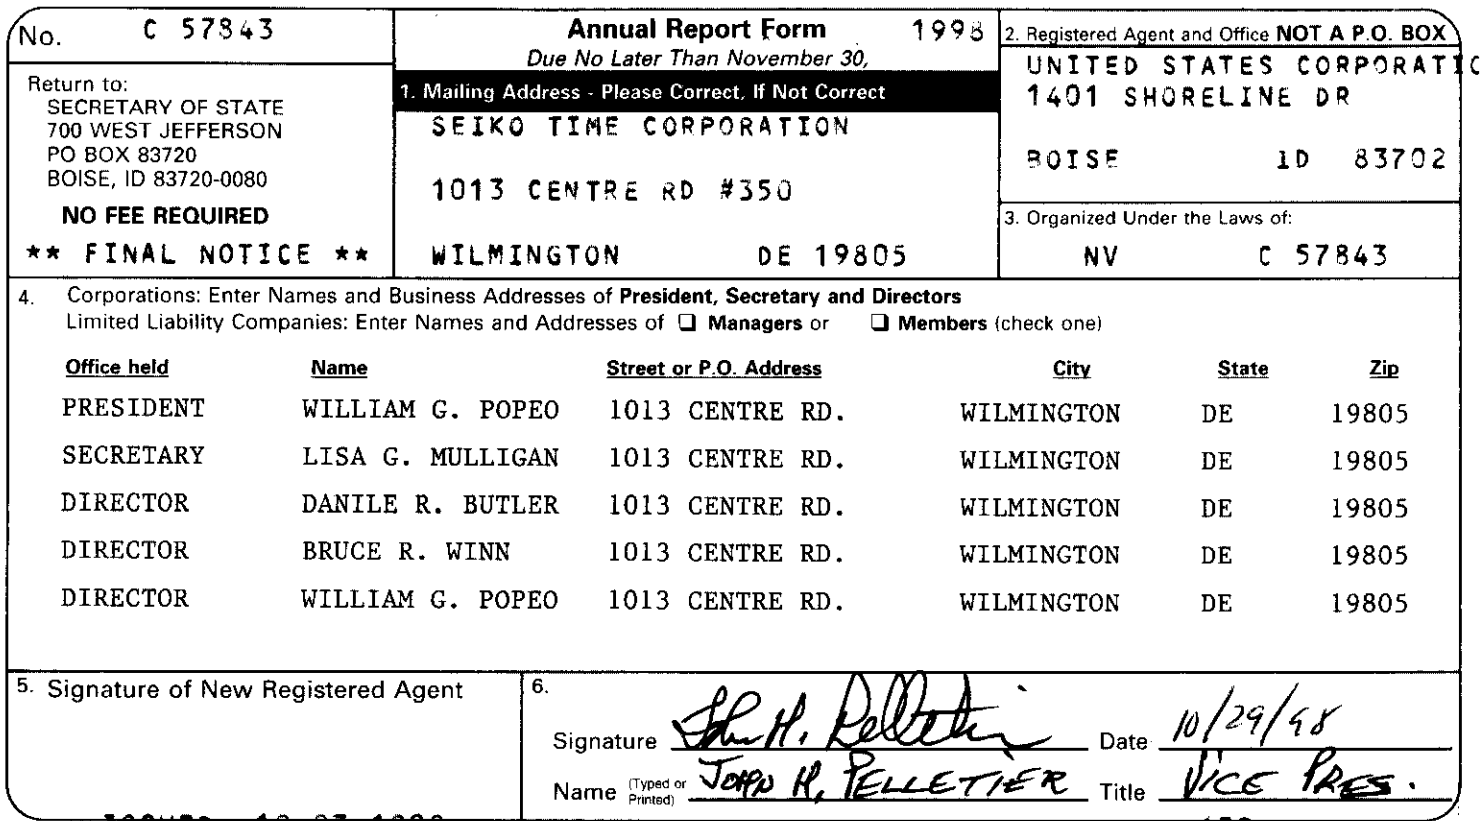 No. C 57843
Annual Report Form 1998
Due No Later Than November 30,
Return to:
SECRETARY OF STATE
700 WEST JEFFERSON
PO BOX 83720
BOISE, ID 83720-0080
NO FEE REQUIRED
** FINAL NOTICE **
1. Mailing Address - Please Correct, If Not Correct
SEIKO TIME CORPORATION
1013 CENTRE RD #350
WILMINGTON DE 19805
2. Registered Agent and Office NOT A P.O. BOX
UNITED STATES CORPORATIO
1401 SHORELINE DR
BOISE ID 83702
3. Organized Under the Laws of:
NV C 57843
4. Corporations: Enter Names and Business Addresses of President, Secretary and Directors
Limited Liability Companies: Enter Names and Addresses of ❑ Managers or ❑ Members (check one)
Office held Name Street or P.O. Address City State Zip
PRESIDENT WILLIAM G. POPEO 1013 CENTRE RD. WILMINGTON DE 19805
SECRETARY LISA G. MULLIGAN 1013 CENTRE RD. WILMINGTON DE 19805
DIRECTOR DANILE R. BUTLER 1013 CENTRE RD. WILMINGTON DE 19805
DIRECTOR BRUCE R. WINN 1013 CENTRE RD. WILMINGTON DE 19805
DIRECTOR WILLIAM G. POPEO 1013 CENTRE RD. WILMINGTON DE 19805
5. Signature of New Registered Agent
6.
Signature John H. Pelletier Date 10/29/98
Name (Typed or Printed) JOHN H. PELLETIER Title VICE PRES.